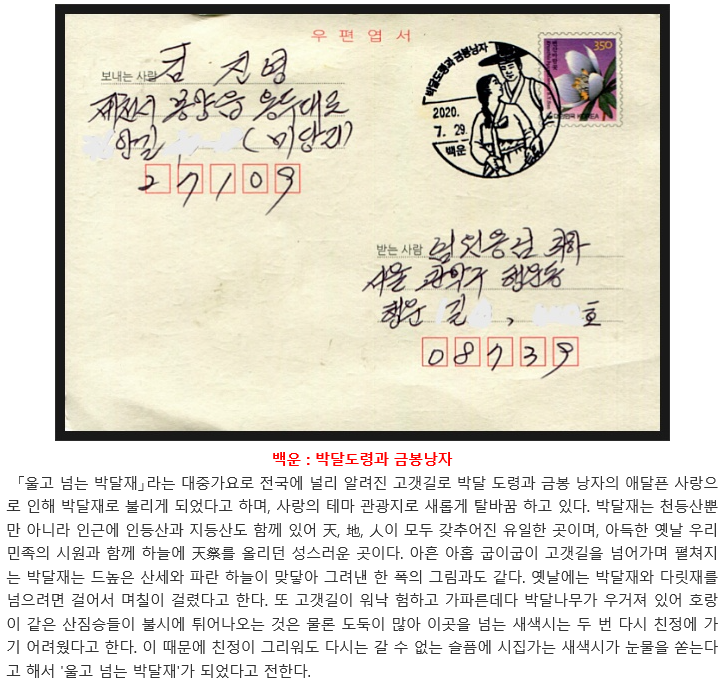 우 편 엽 서
보내는 사람 김 진 영
제천시 봉양읍 용두대로
안길 (미당리)
27109
박달도령과 금봉낭자
2020.
7. 29.
백운
350
대한민국 KOREA
받는 사람 귀하
서울 관악구 행운동
행운 길 , 호
08739
백운 : 박달도령과 금봉낭자
「울고 넘는 박달재」라는 대중가요로 전국에 널리 알려진 고갯길로 박달 도령과 금봉 낭자의 애달픈 사랑으
로 인해 박달재로 불리게 되었다고 하며, 사랑의 테마 관광지로 새롭게 탈바꿈 하고 있다. 박달재는 천등산뿐
만 아니라 인근에 인등산과 지등산도 함께 있어 天, 地, 人이 모두 갖추어진 유일한 곳이며, 아득한 옛날 우리
민족의 시원과 함께 하늘에 天祭를 올리던 성스러운 곳이다. 아흔 아홉 굽이굽이 고갯길을 넘어가며 펼쳐지
는 박달재는 드높은 산세와 파란 하늘이 맞닿아 그려낸 한 폭의 그림과도 같다. 옛날에는 박달재와 다릿재를
넘으려면 걸어서 며칠이 걸렸다고 한다. 또 고갯길이 워낙 험하고 가파른데다 박달나무가 우거져 있어 호랑
이 같은 산짐승들이 불시에 튀어나오는 것은 물론 도둑이 많아 이곳을 넘는 새색시는 두 번 다시 친정에 가
기 어려웠다고 한다. 이 때문에 친정이 그리워도 다시는 갈 수 없는 슬픔에 시집가는 새색시가 눈물을 쏟는다
고 해서 '울고 넘는 박달재'가 되었다고 전한다.